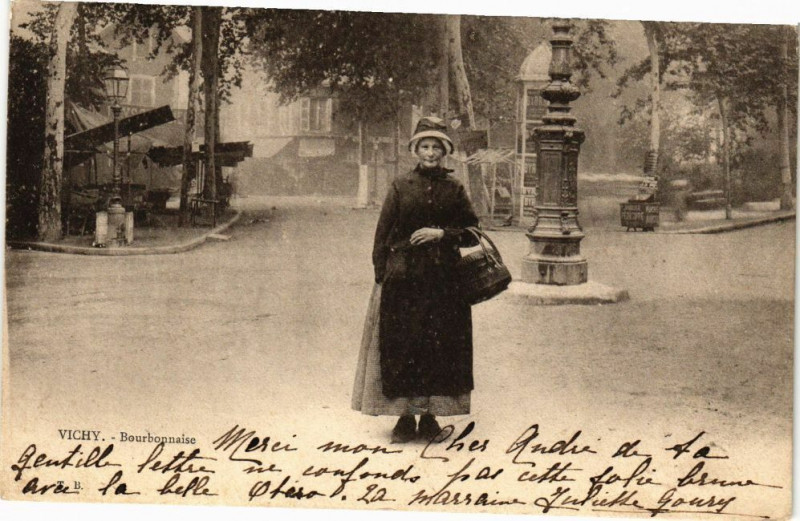 VICHY. - Bourbonnaise
T. B.
Merci mon Cher Andre de ta
gentille lettre ne confonds pas cette jolie brune
avec la belle Otéro! Ta marraine Juliette Goury